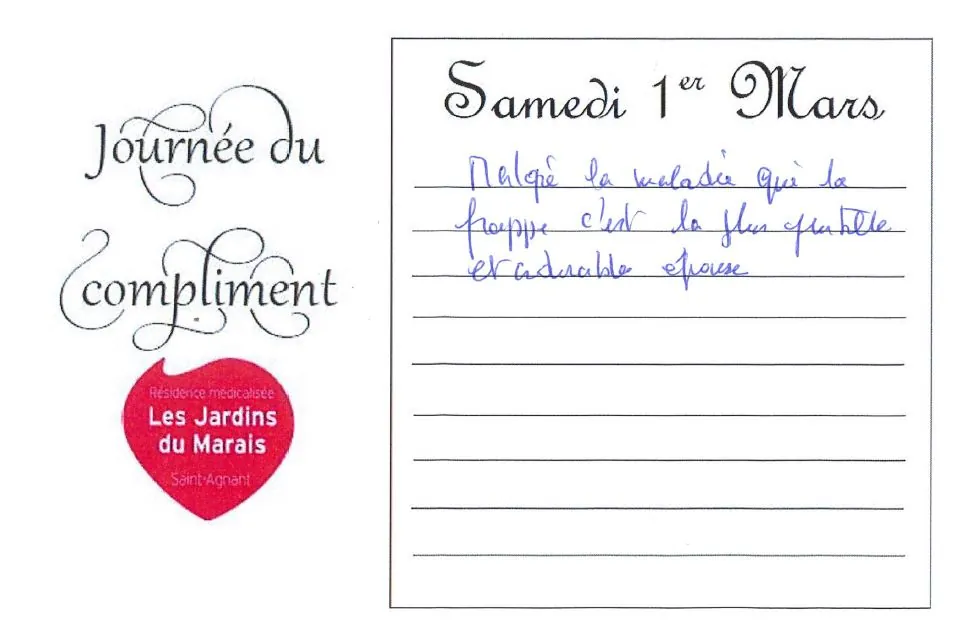 Journée du
compliment
Résidence médicalisée
Les Jardins
du Marais
Saint-Agnant
Samedi 1er Mars
Malgré la maladie qui la
frappe c'est la plus gentille
et adorable épouse